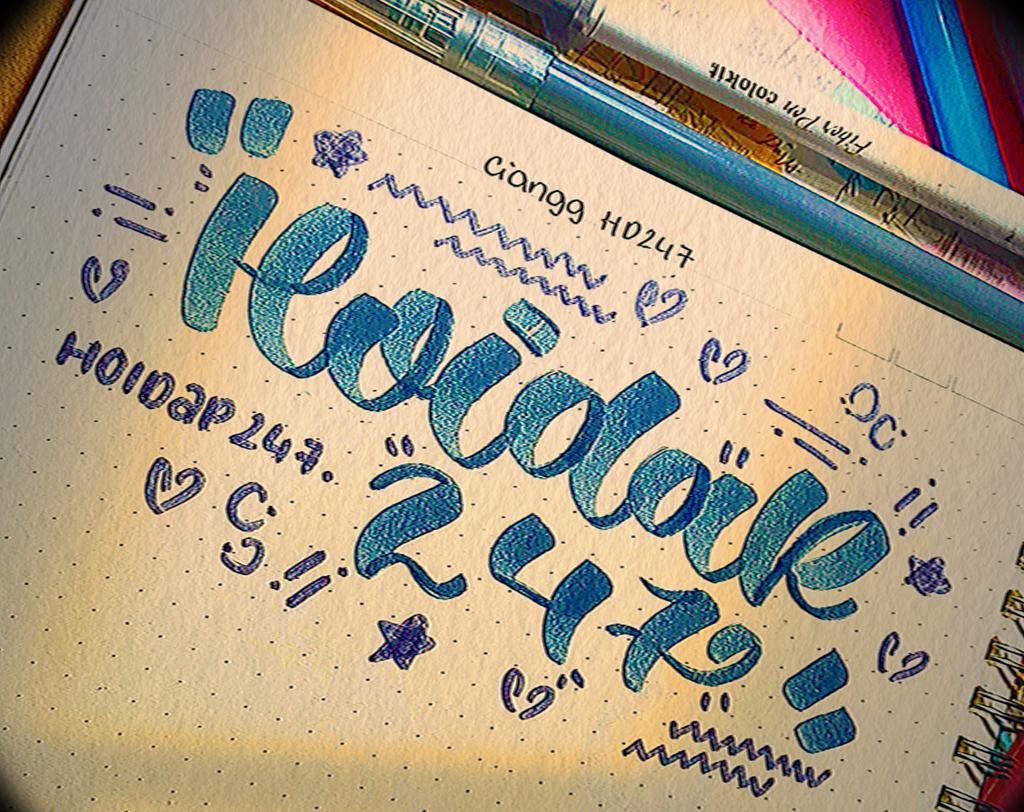 Fiber Pen colokit
Ciangg HD247
"Hoidap
247"
HOIDaP 247.